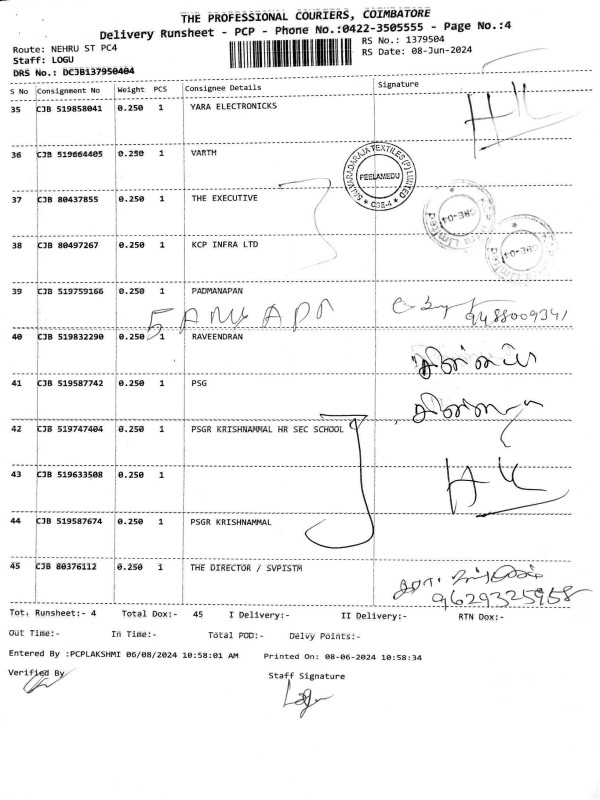 THE PROFESSIONAL COURIERS, COIMBATORE
Delivery Runsheet - PCP - Phone No.:0422-3505555 - Page No.:4
Route: NEHRU ST PC4
RS No.: 1379504
Staff: LOGU
RS Date: 08-Jun-2024
DRS No.: DCJB137950404
S No Consignment No Weight PCS Consignee Details Signature
35 CJB 519858041 0.250 1 YARA ELECTRONICKS
36 CJB 519664405 0.250 1 VARTH
SRI VARADARAJA TEXTILES (P) LIMITED
PEELAMEDU
CBE-4
37 CJB 80437855 0.250 1 THE EXECUTIVE
38 CJB 80497267 0.250 1 KCP INFRA LTD
39 CJB 519759166 0.250 1 PADMANAPAN
9488009341
40 CJB 519832290 0.250 1 RAVEENDRAN
41 CJB 519587742 0.250 1 PSG
42 CJB 519747404 0.250 1 PSGR KRISHNAMMAL HR SEC SCHOOL
43 CJB 519633508 0.250 1
44 CJB 519587674 0.250 1 PSGR KRISHNAMMAL
45 CJB 80376112 0.250 1 THE DIRECTOR / SVPISTM
9629325958
Tot. Runsheet:- 4 Total Dox:- 45 I Delivery:- II Delivery:- RTN Dox:-
Out Time:- In Time:- Total POD:- Delvy Points:-
Entered By :PCPLAKSHMI 06/08/2024 10:58:01 AM Printed On: 08-06-2024 10:58:34
Verified By Staff Signature
Logu